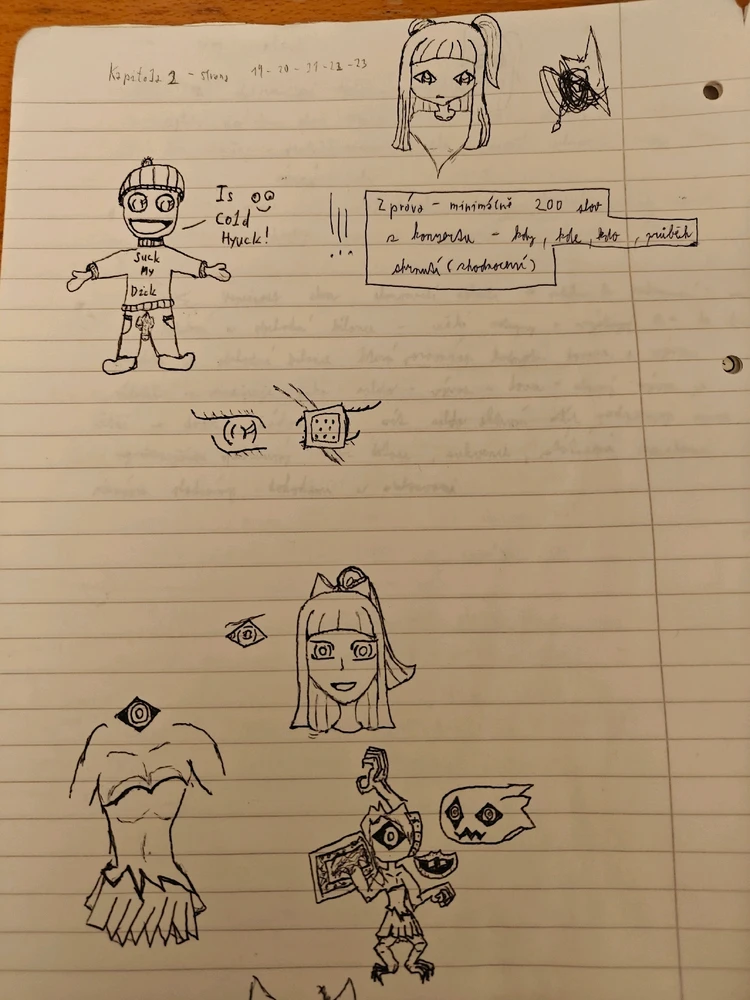 Kapitola 1 - strana 19-20-21-22-23
Is
Cold
Hyuck!
Suck
My
Dick
Zpráva - minimálně 200 slov
z koncertu - kdy, kde, kdo, průběh
shrnutí (zhodnocení)